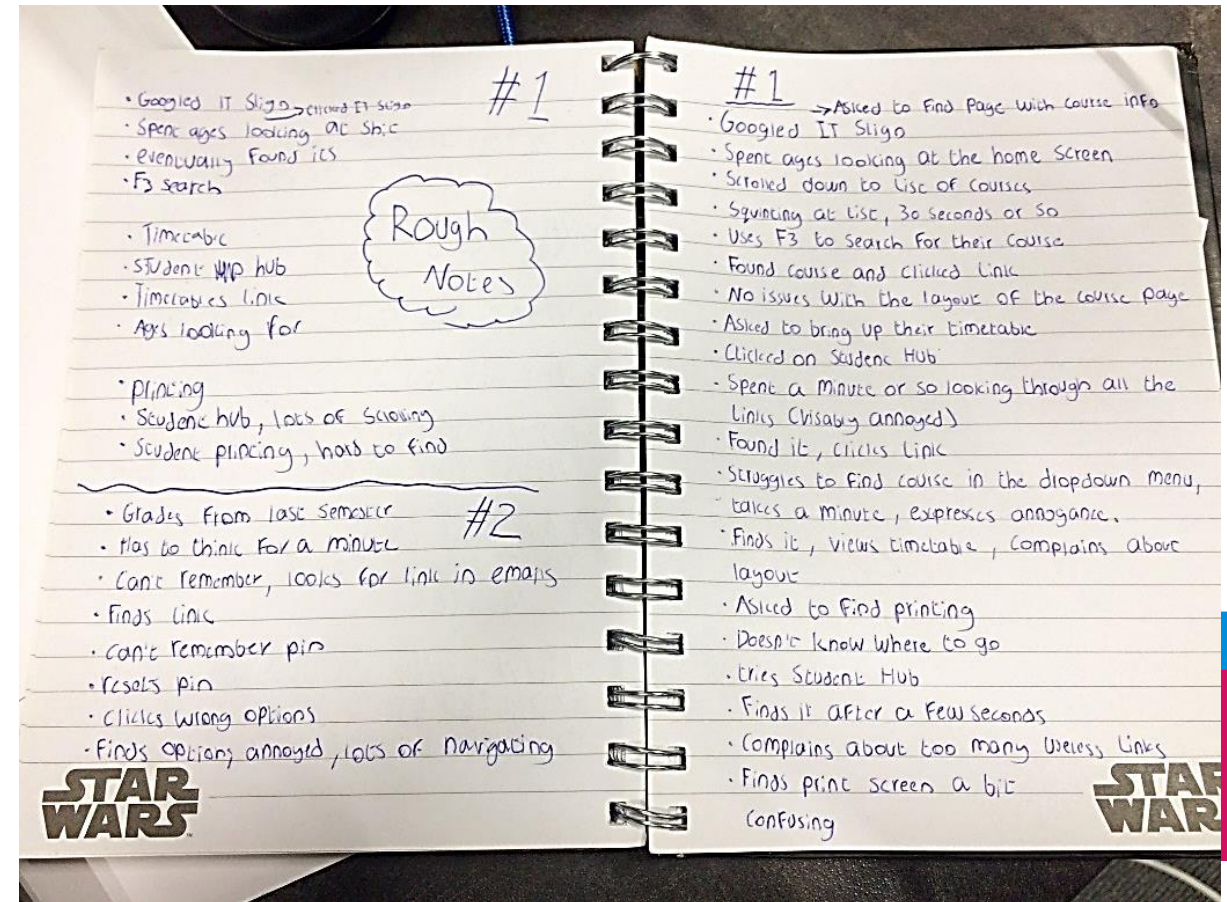 #1
• Googled IT Sligo → clicked IT Sligo
• Spent ages looking at
• eventually found its
• F3 search
Rough
Notes
• Timetable
• Student hub
• Timetables link
• Ages looking for
• printing
• Student hub, lots of scrolling
• Student printing, hard to find
#2
• Grades from last semester
• Has to think for a minute
• Can't remember, looks for link in emails
• Finds link
• Can't remember pin
• resets pin
• Clicks wrong options
• Finds option, annoyed, lots of navigating
STAR
WARS
#1
→ Asked to find page with course info
• Googled IT Sligo
• Spent ages looking at the home screen
• Scrolled down to list of courses
• Squinting at list, 30 seconds or so
• Uses F3 to search for their course
• Found course and clicked link
• No issues with the layout of the course page
• Asked to bring up their timetable
• Clicked on Student Hub
• Spent a minute or so looking through all the
links (visably annoyed)
• Found it, clicks link
• Struggles to find course in the dropdown menu,
takes a minute, expresses annoyance.
• Finds it, views timetable, complains about
layout
• Asked to find printing
• Doesn't know where to go
• tries Student Hub
• Finds it after a few seconds
• Complains about too many useless links
• Finds print screen a bit
confusing
STAR
WAR